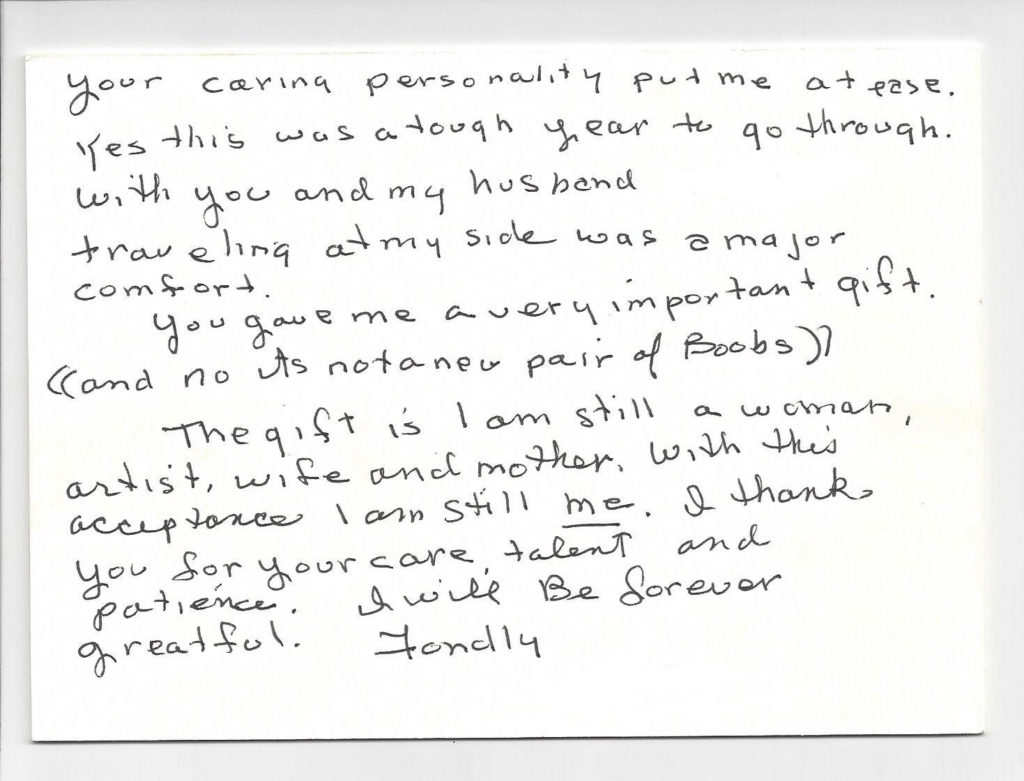 your caring personality put me at ease.
Yes this was a tough year to go through.
With you and my husband
traveling at my side was a major
comfort.
You gave me a very important gift.
((and no its not a new pair of Boobs))
The gift is I am still a woman,
artist, wife and mother. With this
acceptance I am still me. I thank
you for your care, talent and
patience. I will Be forever
greatful. Fondly